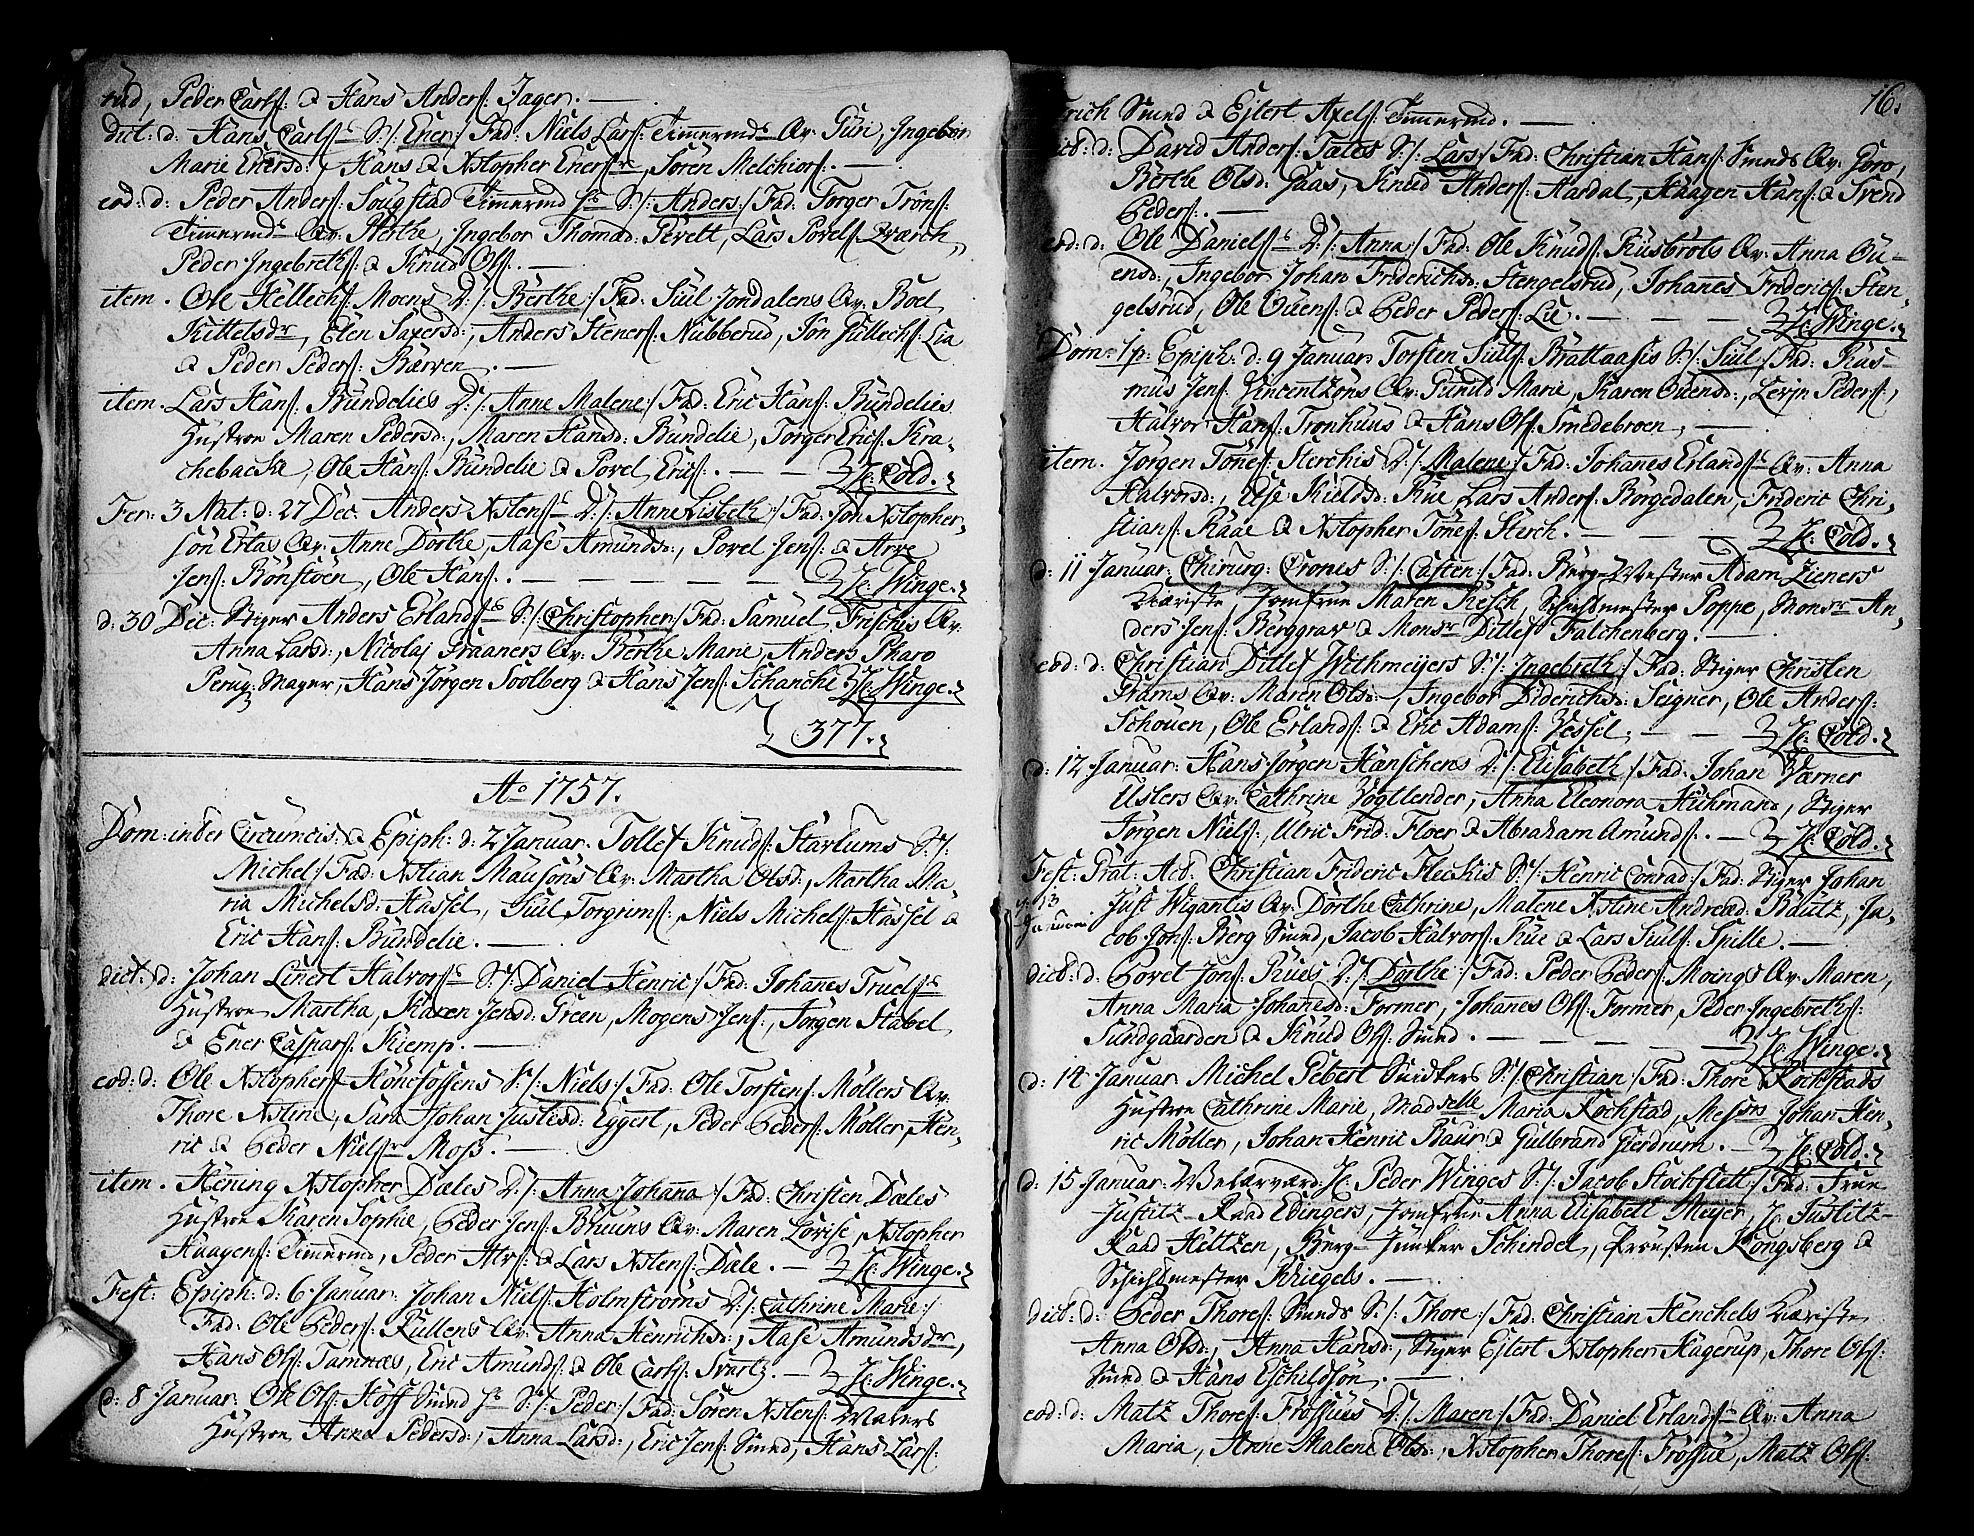 rud, Peder Carls: & Hans Anders: Jager. —
dict: d: Hans Carls: S:/: Ener:/ Fad: Niels Lars: Timermds Qv: Guri, Ingebor
Marie Enersd:, Hans & Xstopher Eners:, Sören Melchiors: —
eod: d: Peder Anders: Sougstad Timermd S:/: Anders:/ Fad: Torger Tröns:
Timermds Qv: Berthe, Ingebor Thomad: Perett, Lars Povels: Qværch,
Peder Ingebreths: & Knud Ols: —
item. Ole Kellechs: Moens D:/: Berthe:/ Fad: Siul Jondalens Qv: Boel
Kittelsdr, Elen Saxersd:, Anders Steners: Nubberud, Jon Gullechs: Lia
& Peder Peders: Bærven. —
item. Lars Hans: Bundelies D:/: Anne Malene:/ Fad: Eric Hans: Bundelies
Hustroe Maren Pedersd:, Maren Hansd: Bundelie, Torger Erics: Kra-
chebacke, Ole Hans: Bundelie & Povel Erics: — — H: Cold.
Fer: 3 Nat: d: 27 Dec: Anders Xstens: D:/: Anne Lisbeth:/ Fad: Jon Xstopher-
sön Erlas Qv: Anne Dorthe, Aase Amundsd:, Povel Jens: & Arve
Jens: Rönstöen, Ole Hans: — — — — H: Winge.
d: 30 Dec: Stiger Anders Erlands: S:/: Christopher:/ Fad: Samuel Frischis Qv:
Anna Larsd:, Nicolaj Praaners Qv: Berthe Marie, Anders Pharo
Peruq-Mager, Hans Jörgen Soolberg & Hans Jens: Schanche H: Winge.
377.
Ao 1757.
Dom: inter Circumcis: & Epiph: d: 2 Januar: Tollef Knuds: Starlums S:/:
Michel:/ Fad: Xstian Mausons Qv: Martha Olsd:, Martha Ma-
ria Michelsd: Hassel, Siul Torgrims:, Niels Michels: Hassel &
Eric Hans: Bundelie. —
dict: d: Johan Linert Halvors: S:/: Daniel Henric:/ Fad: Johanes Truels:
Hustroe Martha, Karen Jensd: Green, Mogens Jens:, Jörgen Stabel
& Ener Caspars: Kiemp. —
eod: d: Ole Xstophers: Hönefossens S:/: Niels:/ Fad: Ole Torstens: Möllers Qv:
Thore Xstine, Sara Johan Justesd: Eggert, Peder Peders: Möller, Hen-
ric & Peder Niels: Moss. —
item. Hening Xstopher Dæles D:/: Anna Johanna:/ Fad: Christen Dæles
Hustroe Karen Sophie, Peder Jens: Bruuns Qv: Maren Lovise, Xstopher
Haagens: Timermd, Peder Alvs: & Lars Xstens: Dæle. — H: Winge.
Fest: Epiph: d: 6 Januar: Johan Niels: Holmströms D:/: Cathrine Marie:/
Fad: Ole Peders: Kullens Qv: Anna Henrichsd:, Aase Amundsdr,
Hans Ols: Tamnæs, Eric Amunds: & Ole Carls: Svartz. — H: Winge.
d: 8 Januar: Ole Ols: Hoff Smed S:/: Peder:/ Fad: Sören Xstens: Walers
Hustroe Anna Pedersd:, Anna Larsd:, Eric Jens: Smed, Hans Lars:
16.
Erich Smed & Ejlert Axels: Timermd. —
dict: d: David Anders: Tales S:/: Lars:/ Fad: Christian Hans: Smeds Qv: Goro,
Berthe Olsd: Gaas, Knud Anders: Aardal, Haagen Hans: & Svend
Peders: —
eod: d: Ole Daniels: D:/: Anna:/ Fad: Ole Knuds: Kusbrots Qv: Anna Ou-
ensd:, Ingebor Johan Friderichsd: Stengelsrud, Johanes Frideric: Sten-
gelsrud, Ole Ouens: & Peder Peders: Lie. — — — H: Winge.
Dom: 1 p: Epiph: d: 9 Januar: Torsten Siuls: Brattaasis S:/: Siul:/ Fad: Ras-
mus Jens: Vincentzons Qv: Gunild Marie, Karen Ouensd:, Levin Peders:,
Halvor Hans: Tronhuus & Hans Ols: Smedebroen. —
item. Jörgen Tönes: Sterchis D:/: Malene:/ Fad: Johanes Erlands: Qv: Anna
Halvorsd:, Else Kieldsd: Rue, Lars Anders: Börgedalen, Frideric Chri-
stians: Raae & Xstopher Tönes: Sterch. — — — H: Cold.
d: 11 Januar: Chirurg: Crones S:/: Casten:/ Fad: Berg-Mester Adam Zieners
Kiæriste, Jomfrue Maren Resch, Schichtmester Poppe, Monsr An-
ders Jens: Berggrav & Monsr Ditlef Falchenberg. —
eod: d: Christian Ditlef Withmeyers S:/: Ingebreth:/ Fad: Stiger Christen
Prams Qv: Maren Olsd:, Ingebor Diderichsd: Seigner, Ole Anders:
Schouen, Ole Erlands: & Eric Adams: Vessel. — — H: Cold.
d: 12 Januar: Hans Jörgen Hanschens D:/: Elisabeth:/ Fad: Johan Værner
Uslers Qv: Cathrine Vogtlender, Anna Eleonora Huhmand, Stiger
Jörgen Niels:, Ulric Frid: Floer & Abraham Amunds: — H: Cold.
Fest: Præt: Acb: Christian Frideric Fleckis S:/: Henric Conrad:/ Fad: Stiger Johan
d: 13 Januarii
Just Wigantis Qv: Dorthe Cathrine, Malene Xstine Andread: Bautz, Ja-
cob Jons: Berg Smed, Jacob Halvors: Rue & Lars Siuls: Spille. —
dict: d: Povel Jons: Rues D:/: Dorthe:/ Fad: Peder Peders: Moings Qv: Maren,
Anna Maria Johanesd: Former, Johanes Ols: Former, Peder Ingebreths:
Sundgaarden & Knud Ols: Smed. — — — — H: Winge.
d: 14 Januar: Michel Gebert Snidkers S:/: Christian:/ Fad: Thore Rochstads
Hustroe Cathrine Marie, Madselle Maria Rochstad, Messrs Johan Hen-
ric Möller, Johan Henric Baur & Gulbrand Gierdrum. — H: Cold.
d: 15 Januar: Velærværd: H: Peder Winges S:/: Jacob Stockflett:/ Fad: Frue
Justitz-Raad Edingers, Jomfrue Anna Elisabett Meyer, H: Justitz-
Raad Hiltzen, Berg-Junker Schindel, Provsten Kongsberg &
Schichtmester Kriegels. —
dict: d: Peder Thores: Smeds S:/: Thore:/ Fad: Christian Henchels Kiæriste
Anna Olsd:, Anna Hansd:, Stiger Ejlert Xstophers: Hagerup, Thore Ols:
Smed & Hans Eschildsön. —
eod: d: Matz Thores: Frossues D:/: Maren:/ Fad: Daniel Erlands: Qv: Anna
Maria, Anne Malene Olsd:, Xstopher Thores: Frossue, Matz Ols: